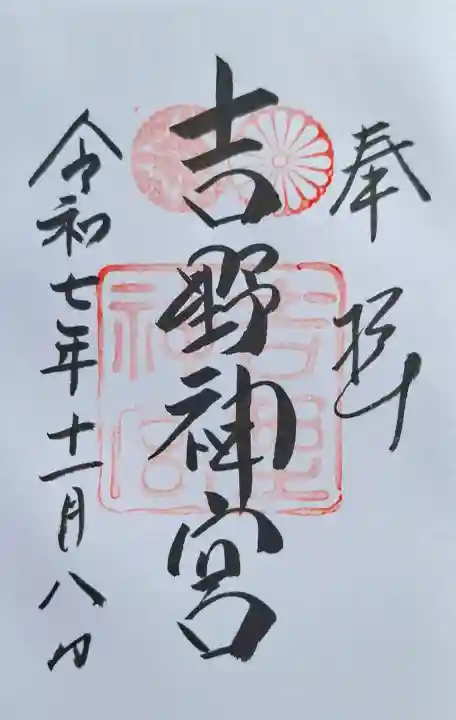 奉拝
吉野神宮
吉野神宮
令和七年十一月八日